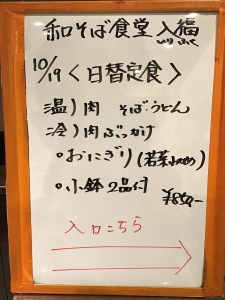 和そば食堂 入福
いりふく
10/19 <日替定食>
温) 肉 そば・うどん
冷) 肉ぶっかけ
○おにぎり (若菜わかめ)
○小鉢2品付
¥850-
入口こちら